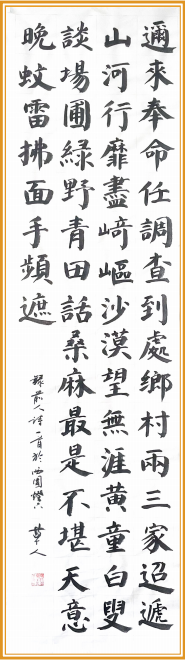 邇來奉命任調查到處鄉村兩三家迢遞
山河行靡盡﨑嶇沙漠望無涯黃童白叟
談場圃緑野青田話桑麻最是不堪天意
晚蚊雷拂面手頻遮
錄前人詩一首於